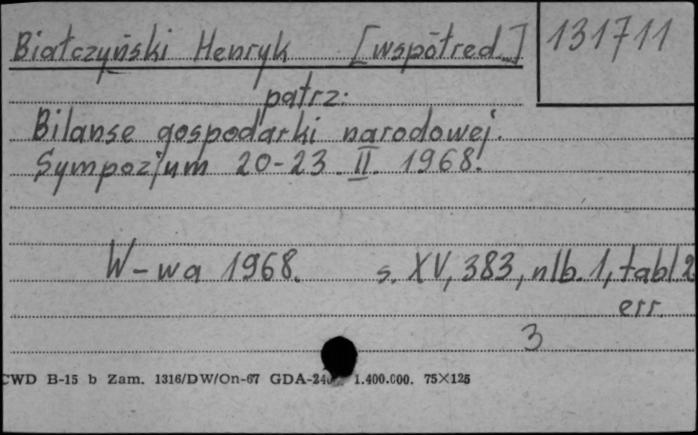 Białczyński Henryk [współred.] 131711
patrz:
Bilanse gospodarki narodowej.
Sympozjum 20-23. II. 1968.
W-wa 1968. s. XV, 383, nlb. 1, tabl 2
err.
3
CWD B-15 b Zam. 1316/DW/On-67 GDA-240 1.400.000. 75×125